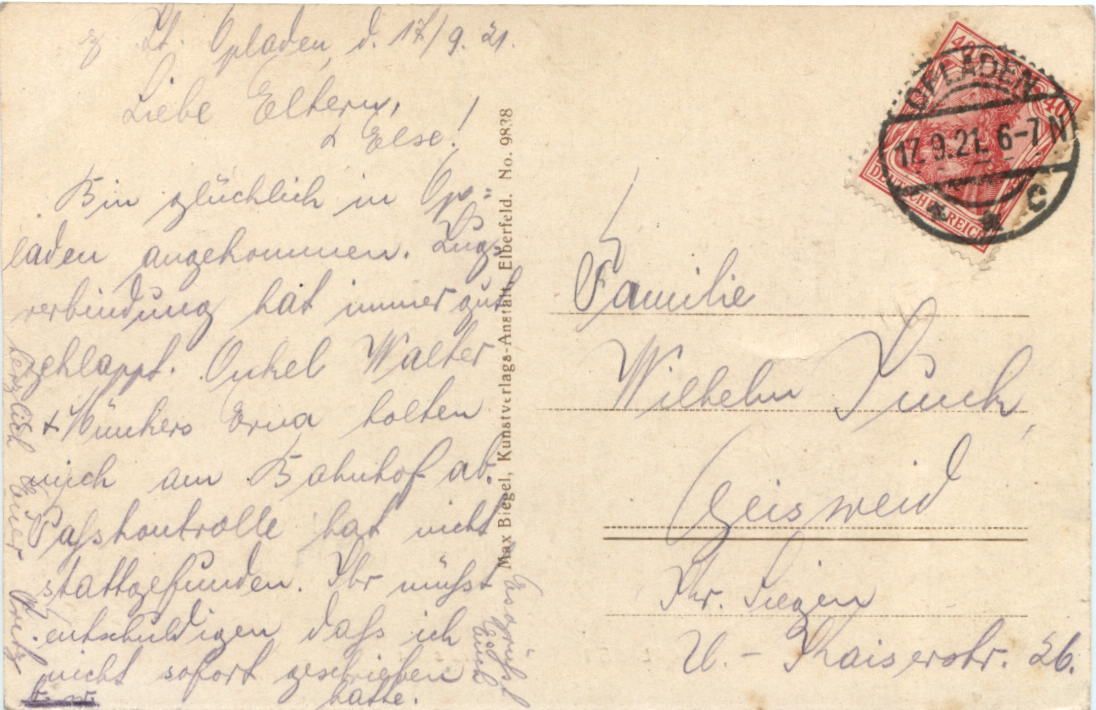 z. Zt. Opladen, d. 17/9.21.
Liebe Eltern,
& Else!
Bin glücklich in Op-
laden angekommen. Zug-
verbindung hat immer gut
geklappt. Onkel Walter
& Münkers Erna holten
mich am Bahnhof ab.
Paßkontrolle hat nicht
stattgefunden. Ihr müßt
entschuldigen daß ich
nicht sofort geschrieben
hatte.
Es grüßt
Euch
herzlich Euer
Max Biegel, Kunstverlags-Anstalt, Elberfeld. No. 9838
40
40
DEUTSCHES REICH
OPLADEN
17.9.21. 6-7 N
* * c
Familie
Wilhelm
Geisweid
Kr. Siegen
U. - Kaiserstr. 26.